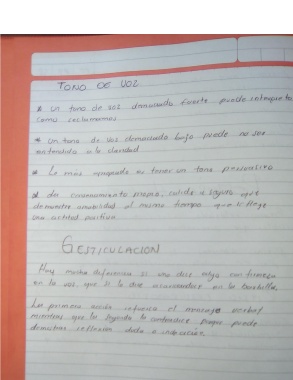 TONO DE VOZ
* Un tono de voz demasiado fuerte puede interpretarse
como reclamamos
* Un tono de voz demasiado bajo puede no ser
entendido o la claridad
* Lo mas apropiado es tener un tono persuasivo
firme, calida y segura que
demuestre amabilidad al mismo tiempo que
una actitud positiva
GESTICULACION
Hay mucha diferencia si uno dice algo con firmeza
en la voz, que si lo dice
La primera accion refuerza el mensaje verbal
mientras que la segunda lo contradice porque puede
demostrar reflexion duda o indecision.